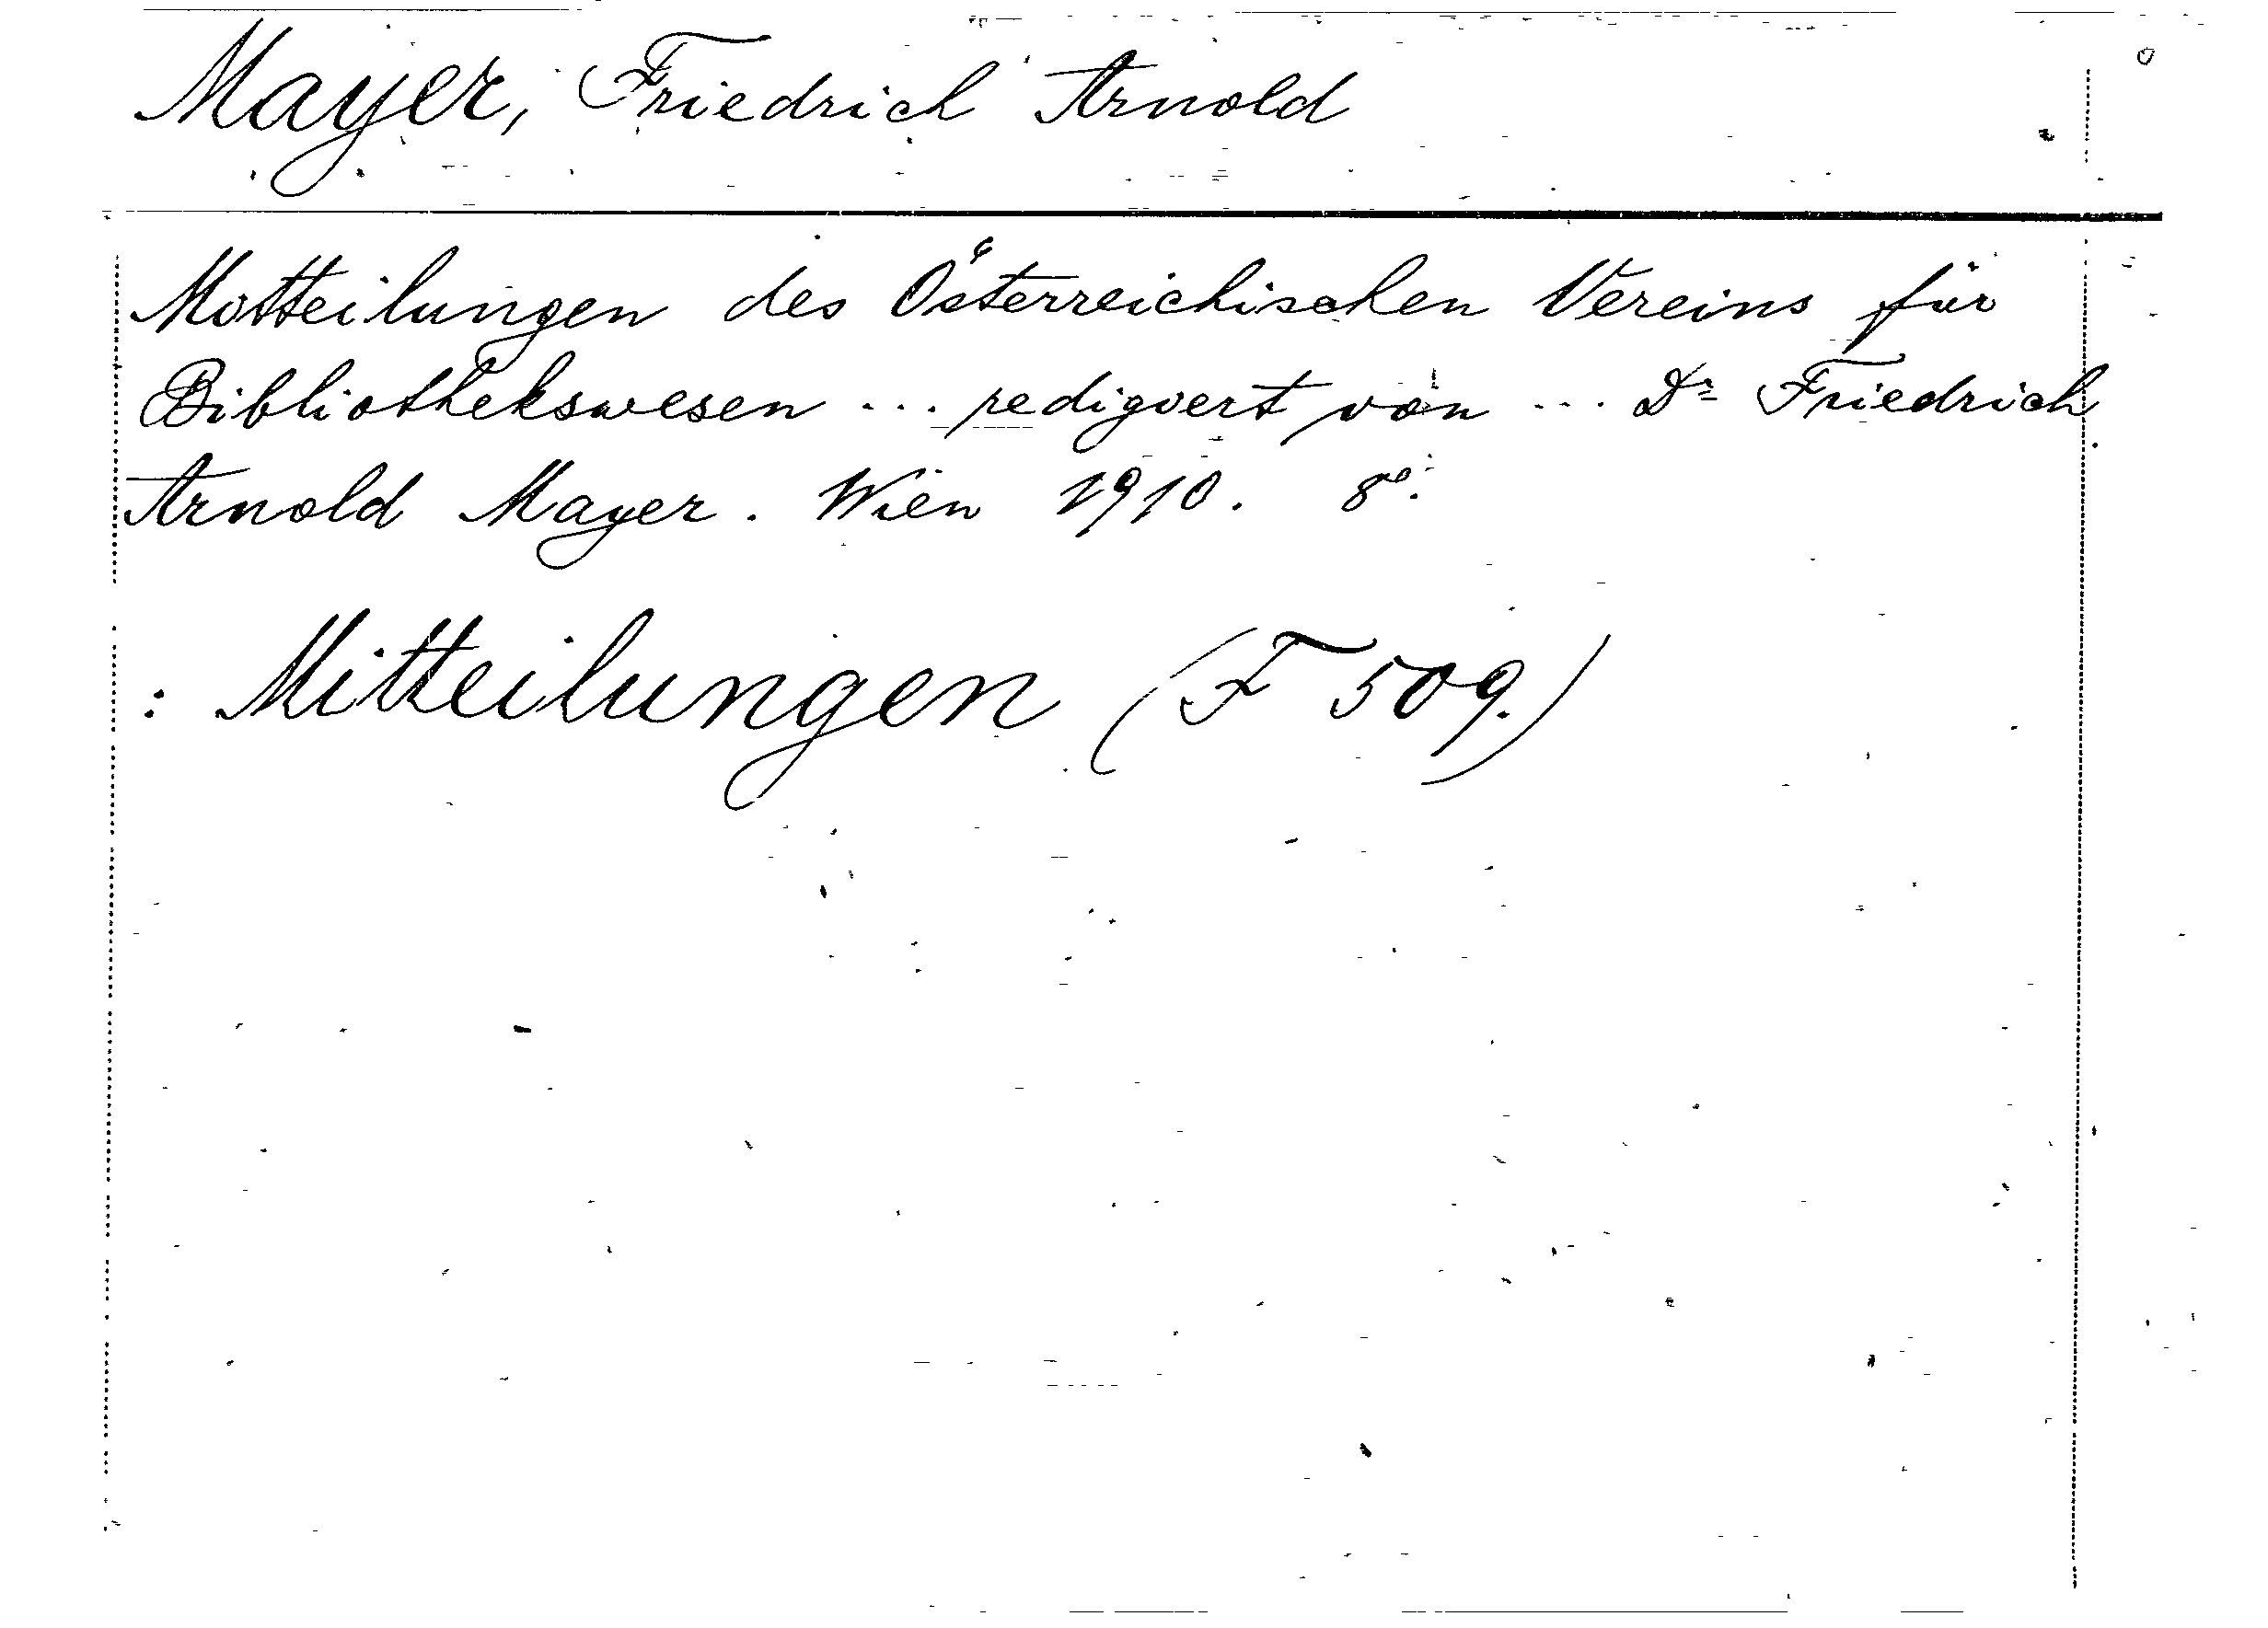 Mayer, Friedrich Arnold
Motteilungen des Österreichischen Vereins für
Bibliothekswesen ... redigiert von ... Dr Friedrich
Arnold Mayer. Wien 1910. 8º.
: Mitteilungen (F 509.)